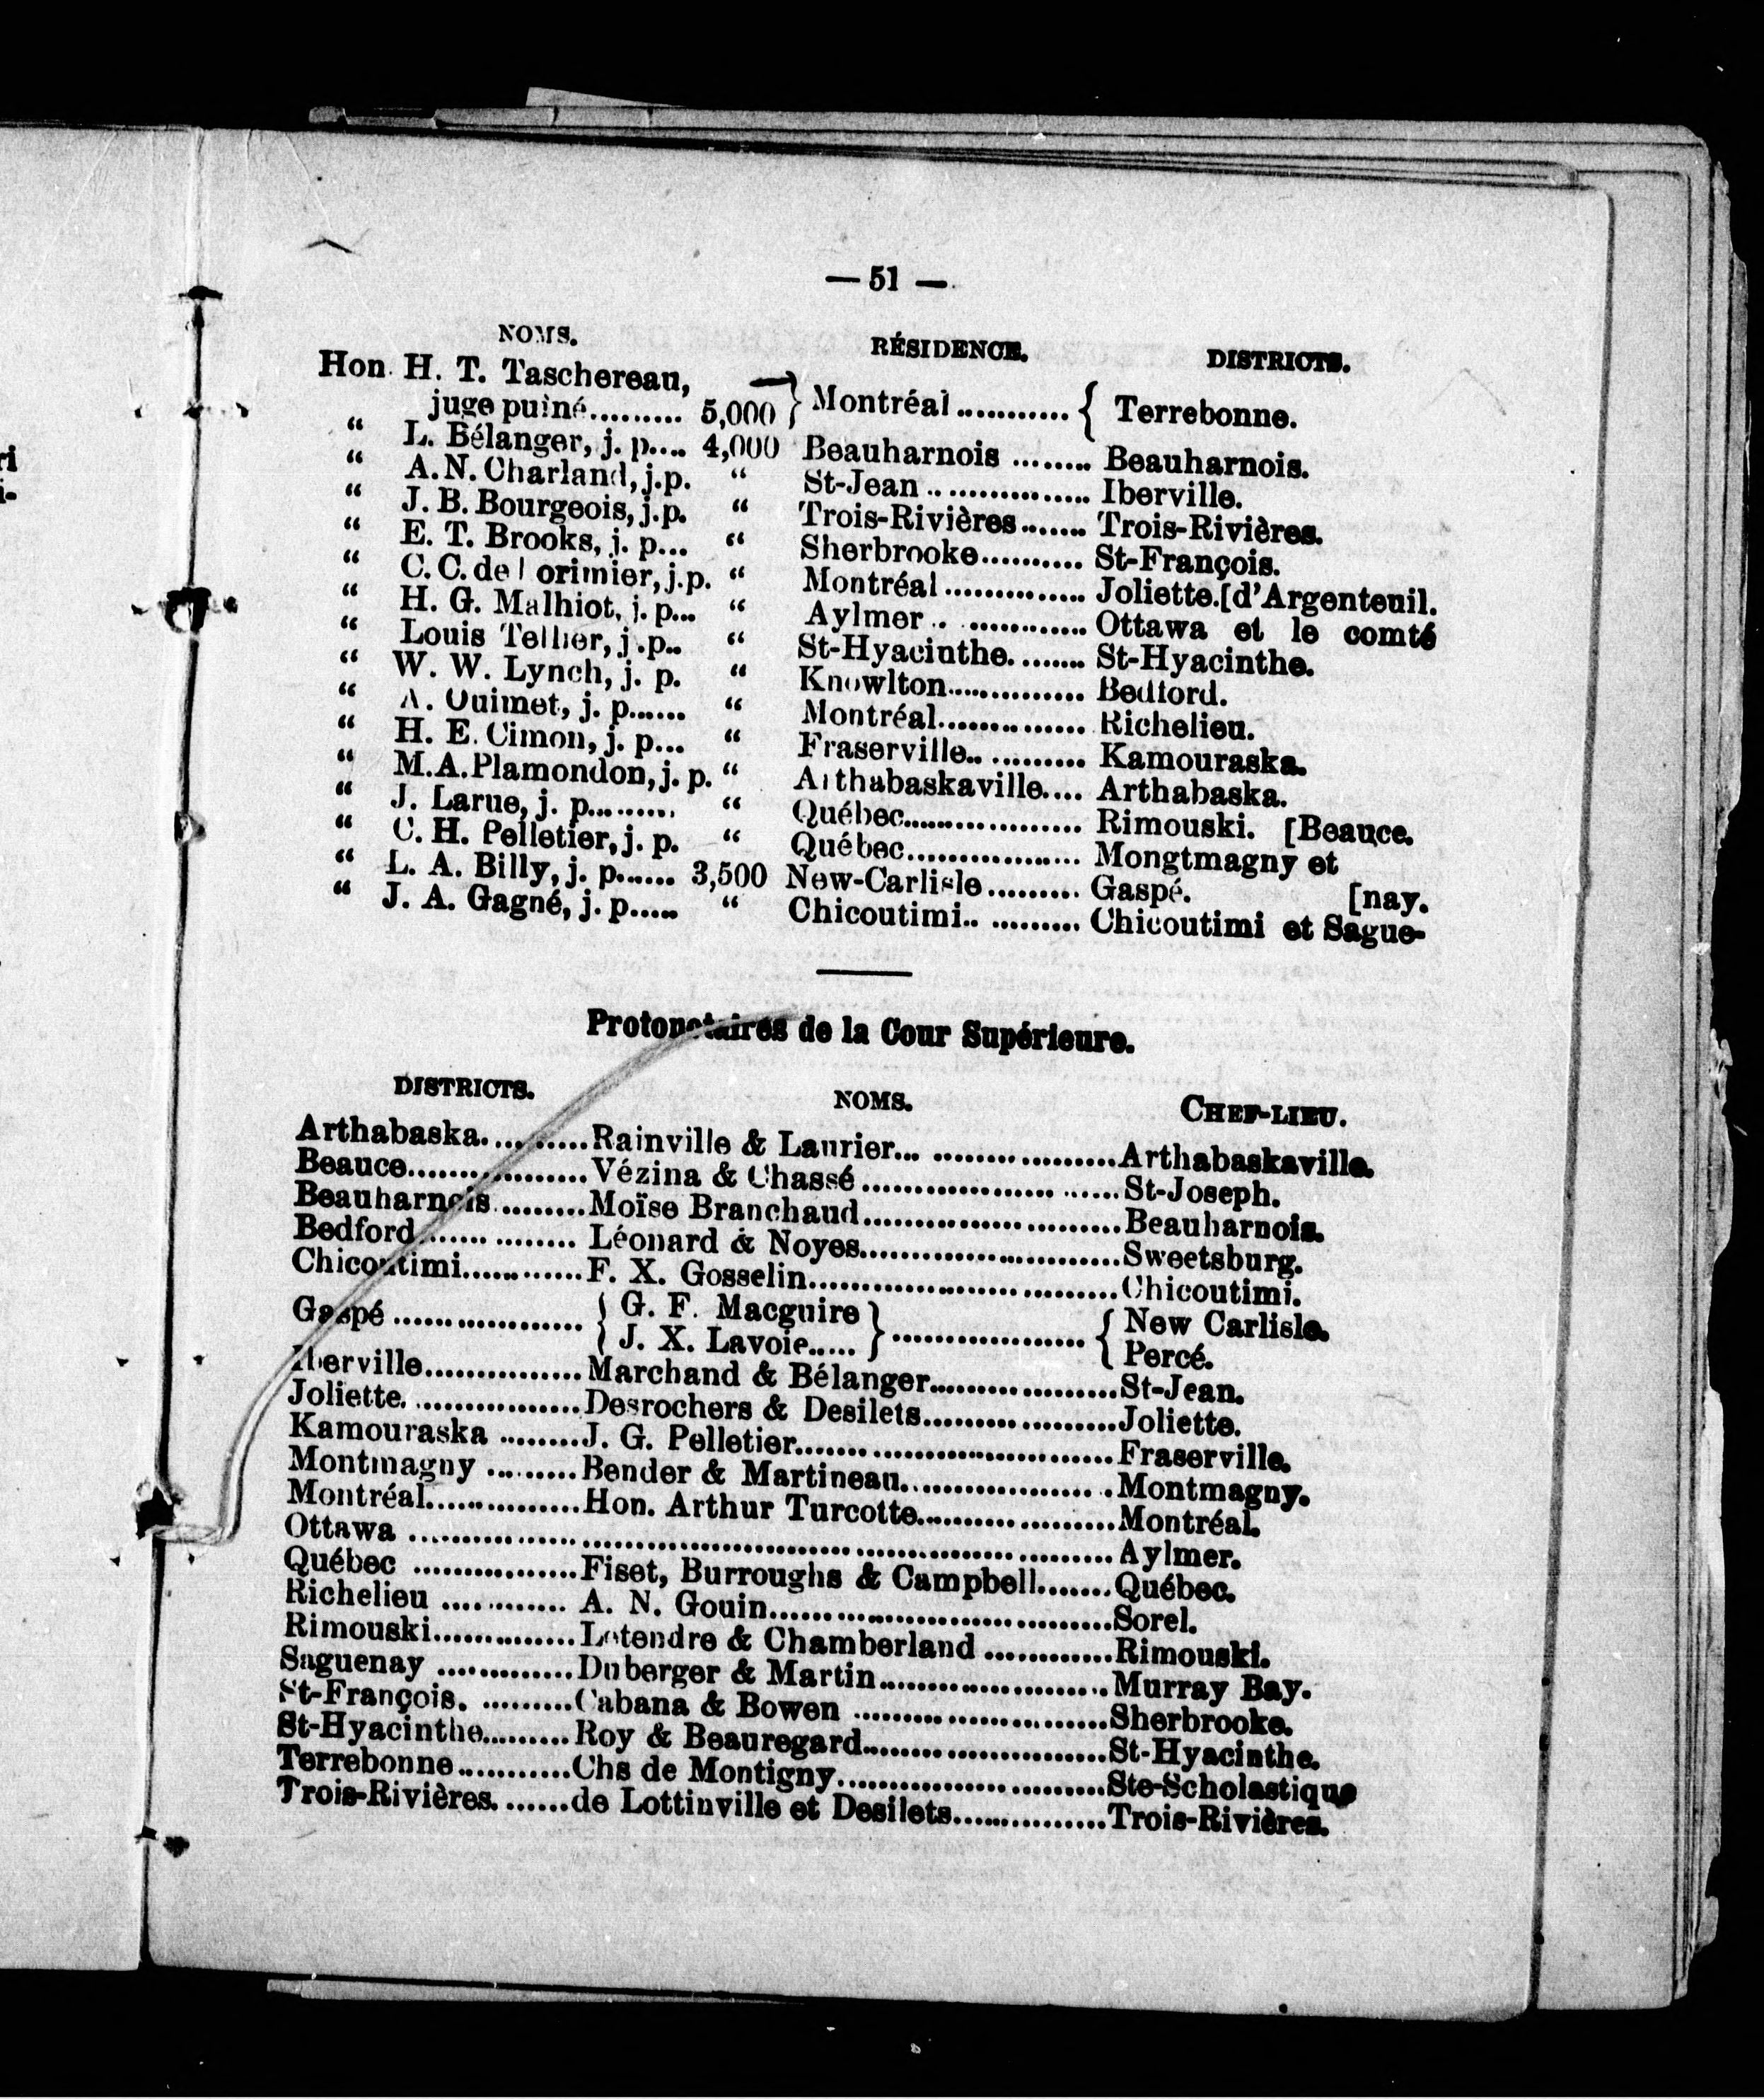 — 51 —
NOMS. RÉSIDENCE. DISTRICTS.
Hon. H. T. Taschereau,
juge puiné.......... 5,000 } Montréal ........... { Terrebonne.
“ L. Bélanger, j. p.... 4,000 Beauharnois ........ Beauharnois.
“ A. N. Charland, j.p. “ St-Jean .. .............. Iberville.
“ J. B. Bourgeois, j.p. “ Trois-Rivières....... Trois-Rivières.
“ E. T. Brooks, j. p... “ Sherbrooke.......... St-François.
“ C. C. de Lorimier, j.p. “ Montréal .............. Joliette.[d'Argenteuil.
“ H. G. Malhiot, j. p... “ Aylmer .. ............ Ottawa et le comté
“ Louis Tellier, j.p.. “ St-Hyacinthe........ St-Hyacinthe.
“ W. W. Lynch, j. p. “ Knowlton.............. Bedford.
“ A. Ouimet, j. p...... “ Montréal.............. Richelieu.
“ H. E. Cimon, j. p... “ Fraserville.. ......... Kamouraska.
“ M.A.Plamondon, j. p. “ Arthabaskaville.... Arthabaska.
“ J. Larue, j. p......... “ Québec.................. Rimouski. [Beauce.
“ C. H. Pelletier, j. p. “ Québec................. Mongtmagny et
“ L. A. Billy, j. p...... 3,500 New-Carlisle ......... Gaspé. [nay.
“ J. A. Gagné, j. p..... “ Chicoutimi.. ......... Chicoutimi et Sague-
Protonotaires de la Cour Supérieure.
DISTRICTS. NOMS. CHEF-LIEU.
Arthabaska...........Rainville & Laurier... ..................Arthabaskaville.
Beauce.................Vézina & Chassé ................... ......St-Joseph.
Beauharnois .........Moïse Branchaud..........................Beauharnois.
Bedford....... ......... Léonard & Noyes..........................Sweetsburg.
Chicoutimi............F. X. Gosselin...............................Chicoutimi.
Gaspé ................... { G. F. Macguire } ................... { New Carlisle.
{ J. X. Lavoie..... } { Percé.
Iberville...............Marchand & Bélanger...................St-Jean.
Joliette. ................Desrochers & Desilets...................Joliette.
Kamouraska .........J. G. Pelletier................................Fraserville.
Montmagny .........Bender & Martineau.....................Montmagny.
Montréal...............Hon. Arthur Turcotte....................Montréal.
Ottawa ......................................................................Aylmer.
Québec ................Fiset, Burroughs & Campbell.......Québec.
Richelieu ............ A. N. Gouin..................................Sorel.
Rimouski..............Letendre & Chamberland ............Rimouski.
Saguenay .............Duberger & Martin.......................Murray Bay.
St-François. .........Cabana & Bowen .........................Sherbrooke.
St-Hyacinthe.........Roy & Beauregard........................St-Hyacinthe.
Terrebonne...........Chs de Montigny...........................Ste-Scholastique
Trois-Rivières. ......de Lottinville et Desilets...............Trois-Rivières.